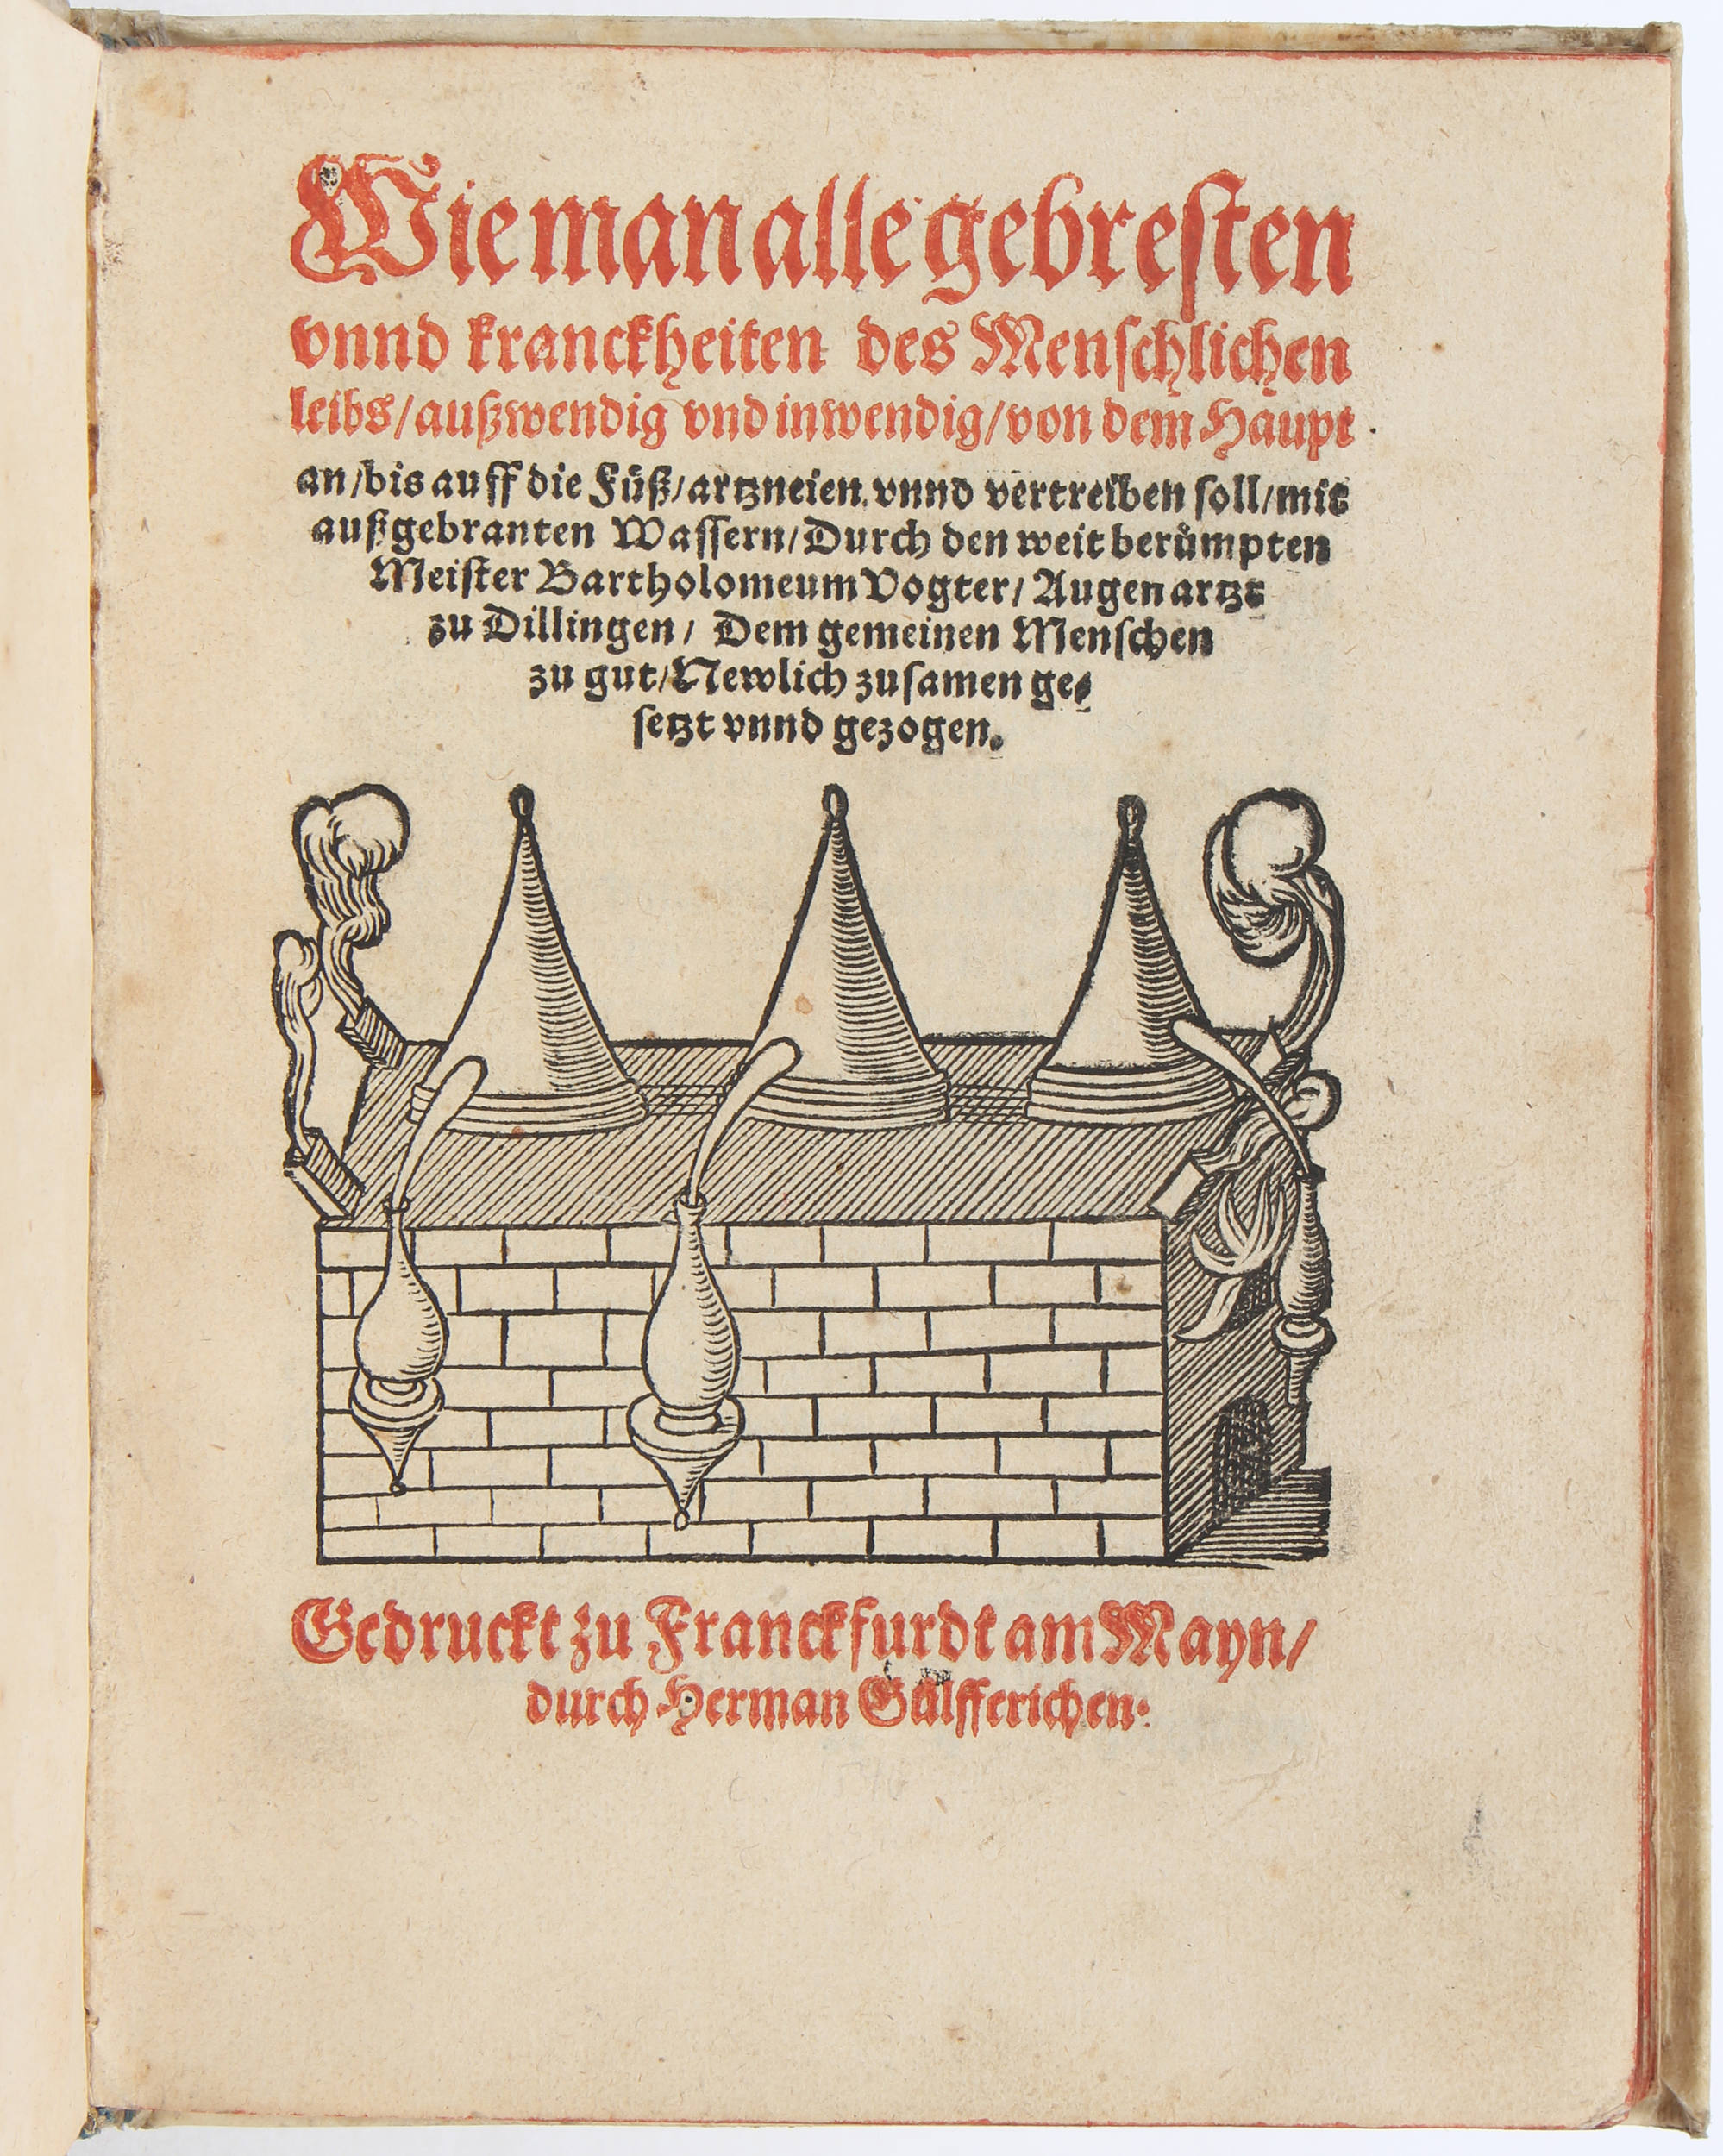 Wie man alle gebresten
vnnd kranckheiten des Menschlichen
leibs/außwendig vnd inwendig/von dem Haupt
an/bis auff die Füß/artzneien vnnd vertreiben soll/mit
außgebranten Wassern/Durch den weit berůmpten
Meister Bartholomeum Vogter/ Augen artzt
zu Dillingen/ Dem gemeinen Menschen
zu gut/Newlich zusamen ge⸗
setzt vnnd gezogen.
Gedruckt zu Franckfurdt am Mayn/
durch Herman Gülfferichen.